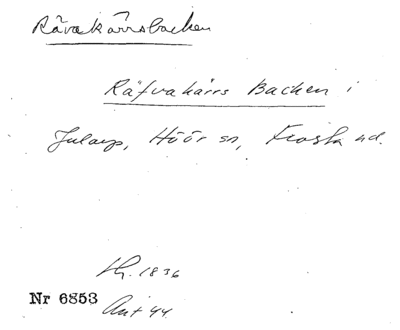 Rävakärrsbacken
Räfvakärrs Backen i
Jularp, Höör sn, Frosta hd.
Lh. 1836
Nr 6853
Ant 44.